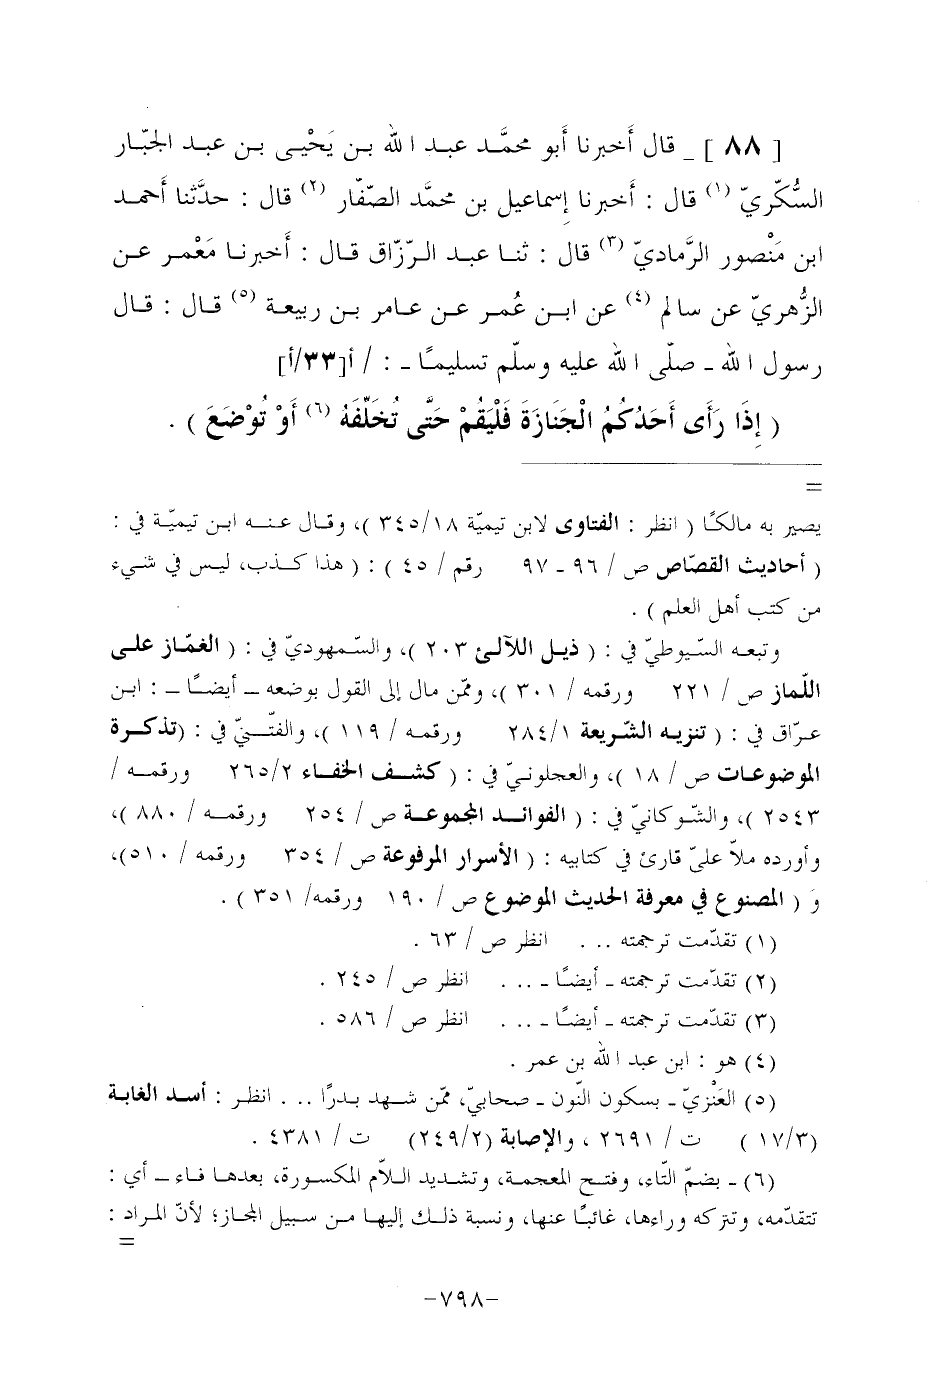 [ ٨٨ ] _ قال أَخبرنا أَبو محمَّد عبد الله بن يَحْيى بن عبد الجبّار
السُّكّريّ (١) قال : أَخبرنا إسماعيل بن محمَّد الصّفّار (٢) قال : حدَّثنا أَحمد
ابن مَنْصور الرَّماديّ (٣) قال : ثنا عبد الرّزّاق قال : أَخبرنا مَعْمر عن
الزُّهريّ عن سالم (٤) عن ابن عُمر عن عامر بن ربيعة (٥) قال : قال
رسول الله ـ صلّى الله عليه وسلّم تسليمًا ـ : / أ[٣٣/أ]
( إِذَا رَأَى أَحَدُكُمُ الْجَنَازَةَ فَلْيَقُمْ حَتَّى تُخَلِّفَهُ (٦) أَوْ تُوْضَعَ ) .
=
يصير به مالكًا ( انظر : الفتاوى لابن تيميّة ٣٤٥/١٨ )، وقال عنه ابن تيميّة في :
( أحاديث القصّاص ص / ٩٦ ـ ٩٧ رقم / ٤٥ ) : ( هذا كذب، ليس في شيء
من كتب أهل العلم ) .
وتبعه السّيوطيّ في : ( ذيل اللآلئ ٢٠٣ )، والسّمهوديّ في : ( الغمّاز على
اللّماز ص / ٢٢١ ورقمه / ٣٠١ )، وممّن مال إلى القول بوضعه ـ أيضًا ـ : ابن
عرّاق في : ( تنزيه الشّريعة ٢٨٤/١ ورقمه / ١١٩ )، والفتّنيّ في : (تذكرة
الموضوعات ص / ١٨ )، والعجلونيّ في : ( كشف الخفاء ٢٦٥/٢ ورقمه /
٢٥٤٣ )، والشّوكانيّ في : ( الفوائد المجموعة ص / ٢٥٤ ورقمه / ٨٨٠ )،
وأورده ملاّ عليّ قارئ في كتابيه : ( الأسرار المرفوعة ص / ٣٥٤ ورقمه / ٥١٠)،
وَ ( المصنوع في معرفة الحديث الموضوع ص / ١٩٠ ورقمه/ ٣٥١ ) .
(١) تقدّمت ترجمته .. . انظر ص / ٦٣ .
(٢) تقدّمت ترجمته ـ أيضًا ـ .. . انظر ص / ٢٤٥ .
(٣) تقدّمت ترجمته ـ أيضًا ـ .. . انظر ص / ٥٨٦ .
(٤) هو : ابن عبد الله بن عمر .
(٥) العَنْزيّ ـ بسكون النّون ـ صحابيّ، ممّن شهد بدرًا .. . انظر : أسد الغابة
(١٧/٣ ) ت / ٢٦٩١ ، والإصابة (٢٤٩/٢) ت / ٤٣٨١ .
(٦) ـ بضمّ التّاء، وفتح المعجمة، وتشديد اللاّم المكسورة، بعدها فاء ـ أي :
تتقدّمه، وتتركه وراءها، غائبًا عنها، ونسبة ذلك إليها من سبيل المجاز؛ لأنّ المراد :
=
-٧٩٨-